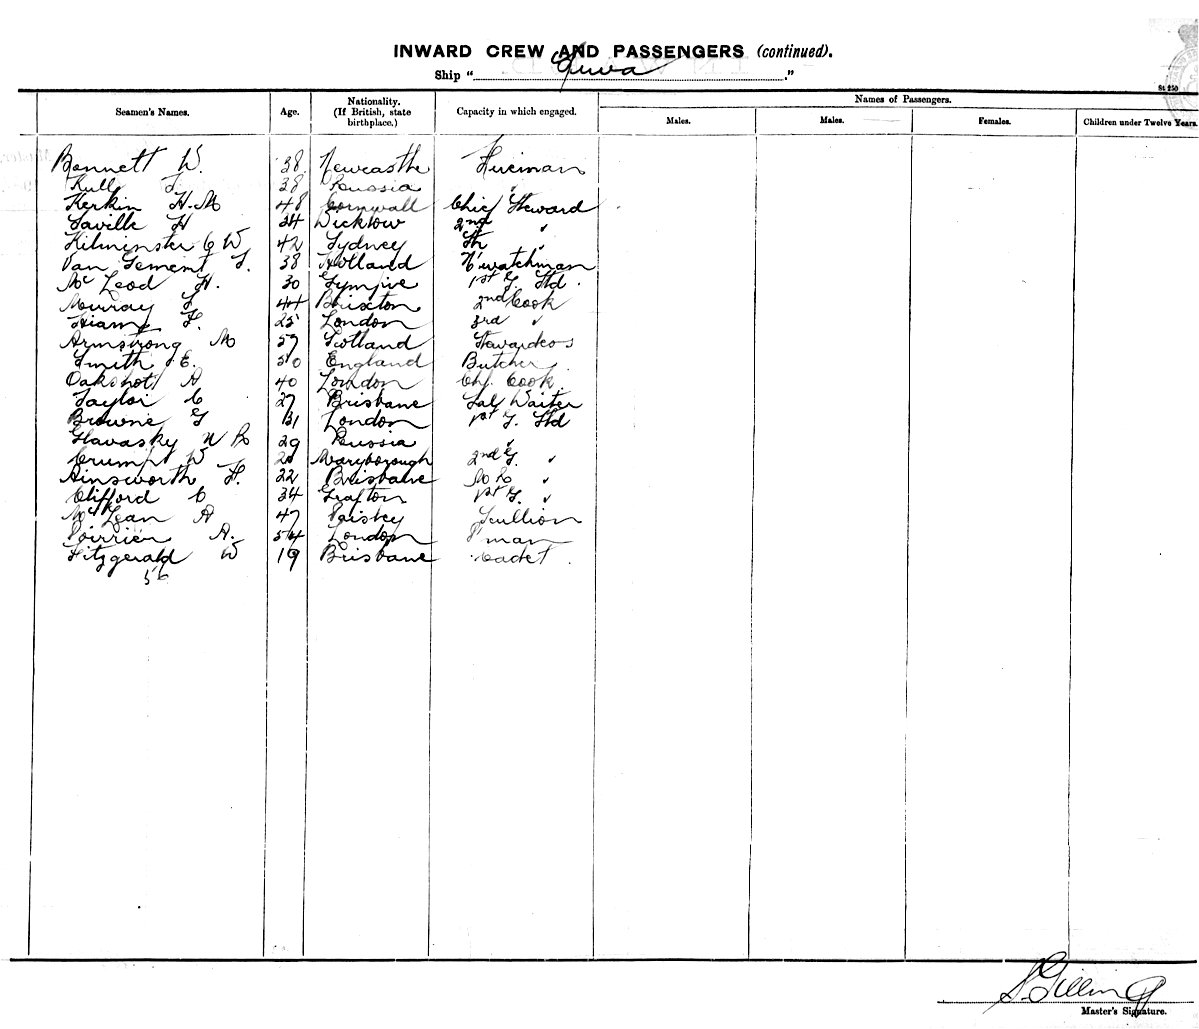 INWARD CREW AND PASSENGERS (continued).
Ship "
St 250
Seamen's Names. Age. Nationality. (If British, state birthplace.) Capacity in which engaged. Names of Passengers.
Males. Males. Females. Children under Twelve Years.
Bennett W. 38 Newcastle Fireman
Kull 38 Russia "
Kerkin H. M 48 Cornwall Chief Steward
Saville H 34 Wicklow 2nd "
Kilminster C W 42 Sydney "
Van Gement 38 Holland N'watchman
McLeod H. 30 Gympie 1st G. Std.
Murray 44 Brixton 2nd Cook
Hiams F. 25 London 3rd "
Armstrong M 57 Scotland Stewardess
Smith E. 50 England Butcher
Oakshott A 40 London Ch. Cook
Taylor C 27 Brisbane Sal Waiter
Browne G 31 London 1st G. Std
Glavasky N 29 Russia "
Crump W Maryborough 2nd G. "
Ainsworth F. 22 Brisbane "
Clifford C 34 Grafton 1st G. "
McLean A 47 Paisley Scullion
Poirrier A. 54 London P'man
Fitzgerald W 19 Brisbane Cadet.
56
Master's Signature.